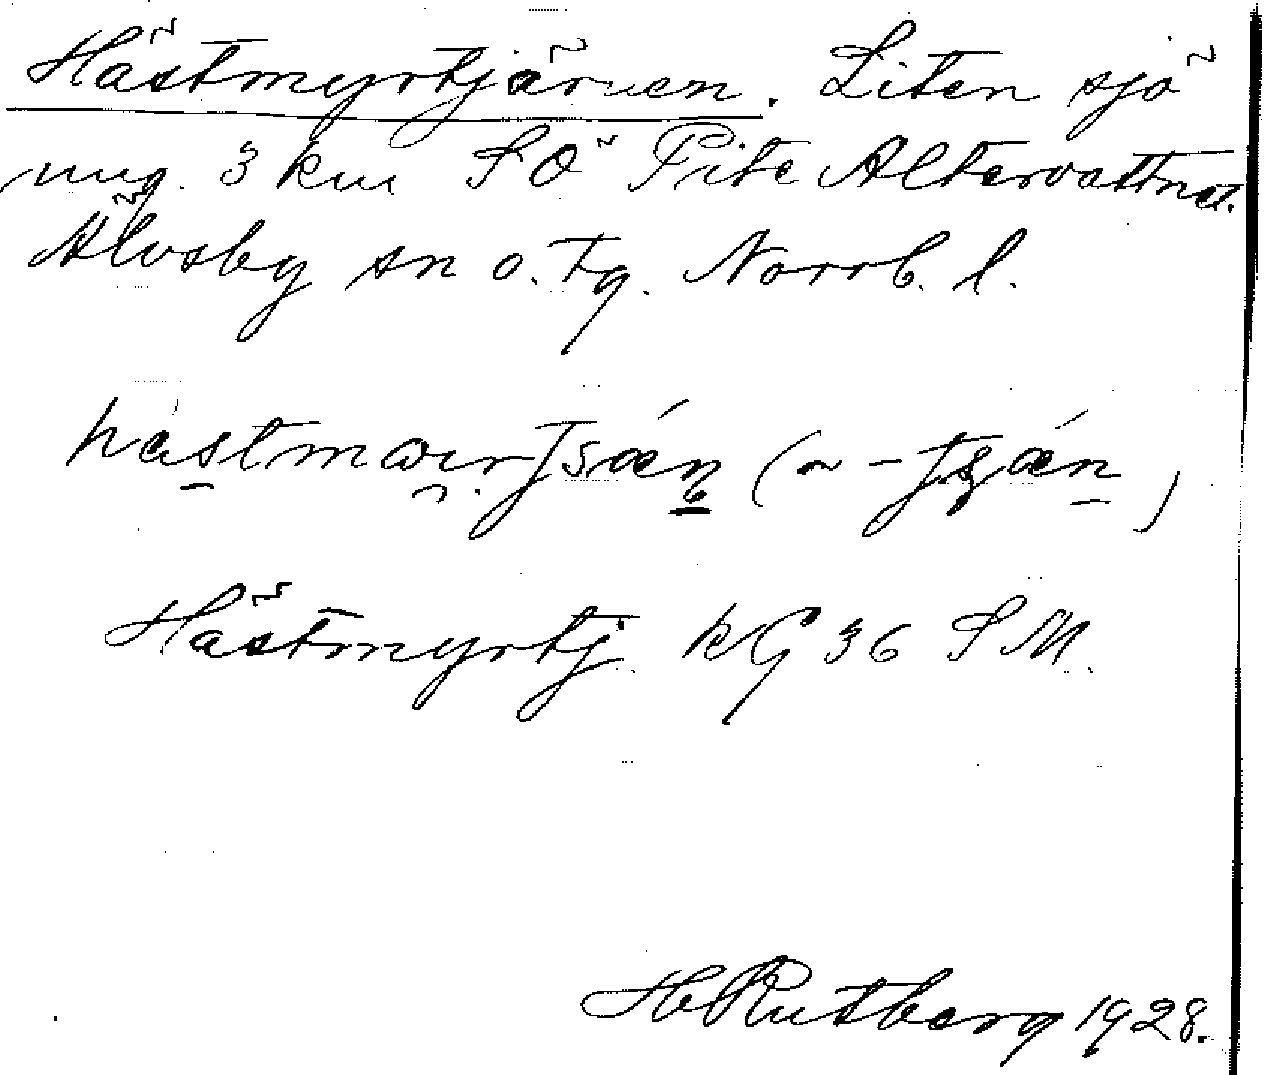 Hästmyrtjärnen. Liten sjö
ung. 3 km SÖ Pite Altervattnet.
Älvsby sn o. tg. Norrb. l.
Hästmyrtj. kG 36 SM.
H Rutberg 1928.